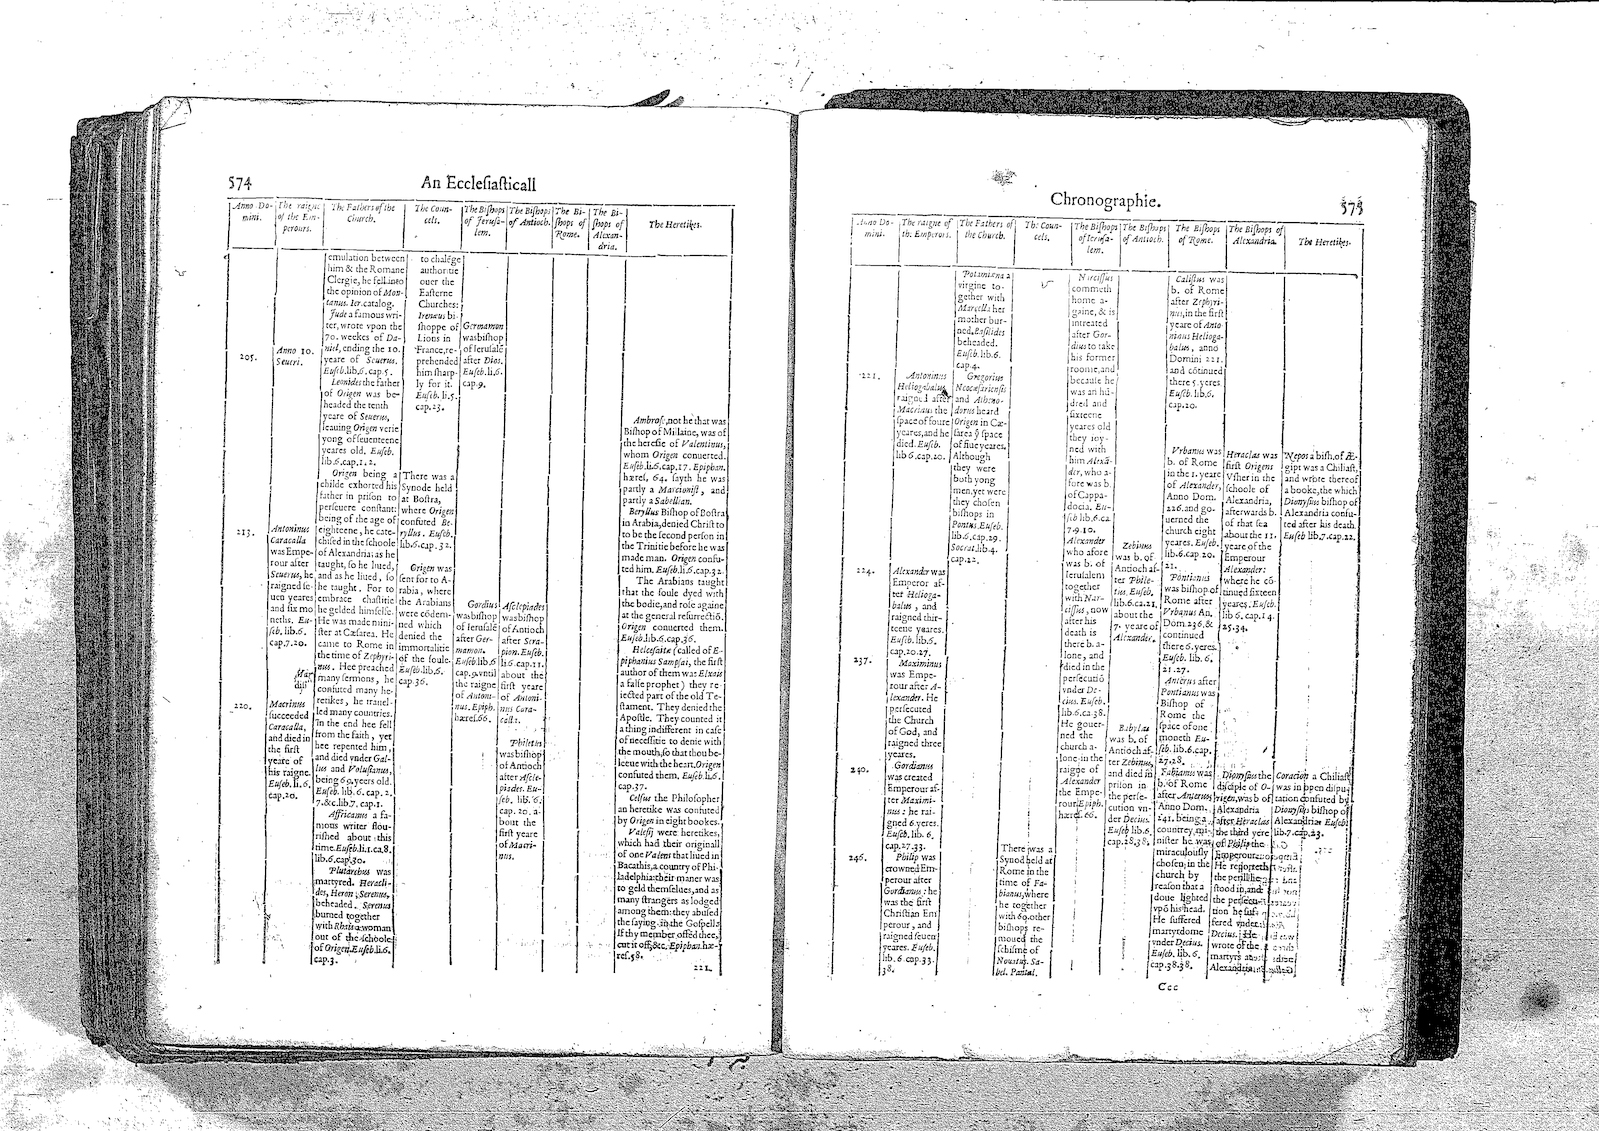 574
An Ecclesiasticall
Anno Do-
mini.
The raigne
of the Em-
perours.
The Fathers of the
Church.
The Coun-
cels.
The Bishops
of Jerusa-
lem.
The Bishops
of Antioch.
The Bi-
shops of
Rome.
The Bi-
shops of
Alexan-
dria.
The Heretikes.
205.
213.
220.
Anno 10.
Seueri.
Antoninus
Caracalla
was Empe-
rour after
Seuerus, he
raigned se-
uen yeares
and six mo
neths. Eu-
seb. lib. 6.
cap. 7. 20.
Macrinus
succeeded
Caracalla,
and died in
the first
yeare of
his raigne.
Euseb. li. 6.
cap. 20.
emulation between
him & the Romane
Clergie, he fell into
the opinion of Mon-
tanus. Ier. catalog.
Jude a famous wri-
ter, wrote vpon the
70. weekes of Da-
niel, ending the 10.
yeare of Seuerus.
Euseb. lib. 6. cap. 5.
Leonides the father
of Origen was be-
headed the tenth
yeare of Seuerus,
leauing Origen verie
yong of seuenteene
yeares old. Euseb.
lib. 6. cap. 1. 2.
Origen being a
childe exhorted his
father in prison to
perseuere constant:
being of the age of
eighteene, he cate-
chised in the schoole
of Alexandria: as he
taught, so he liued,
and as he liued, so
he taught. For to
embrace chastitie
he gelded himselfe.
He was made mini-
ster at Cæsarea. He
came to Rome in
the time of Zephyri-
nus. Hee preached
many sermons, he
confuted many he-
retikes, he trauel-
led many countries.
In the end hee fell
from the faith, yet
hee repented him,
and died vnder Gal-
lus and Volusianus,
being 69. yeares old.
Euseb. lib. 6. cap. 2.
7. &c. lib. 7. cap. 1.
Affricanus a fa-
mous writer flou-
rished about this
time. Euseb. li. 1. ca. 8.
lib. 6. cap. 30.
Plutarchus was
martyred. Heracli-
des, Heron, Serenus,
beheaded. Serenus
burned together
with Rhais a woman
out of the schoole
of Origen. Euseb. li. 6.
cap. 3.
to chalége
authoritie
ouer the
Easterne
Churches:
Irenæus bi-
shoppe of
Lions in
France, re-
prehended
him sharp-
ly for it.
Euseb. li. 5.
cap. 23.
There was a
Synode held
at Bostra,
where Origen
confuted Be-
ryllus. Euseb.
lib. 6. cap. 32.
Origen was
sent for to A-
rabia, where
the Arabians
were códem-
ned which
denied the
immortalitie
of the soule.
Euseb. lib. 6.
cap. 36.
Germanion
was bishop
of Ierusalé
after Dios.
Euseb. li. 6.
cap. 9.
Gordius
was bishop
of Ierusalé
after Ger-
manion.
Euseb. lib. 6
cap. 9. vntil
the raigne
of Antoni-
nus. Epiph.
hæres. 66.
Asclepiades
was bishop
of Antioch
after Sera-
pion. Euseb.
li. 6. cap. 11.
about the
first yeare
of Antoni-
nus Cara-
calla.
Philetus
was bishop
of Antioch
after Ascle-
piades. Eu-
seb. lib. 6.
cap. 20. a-
bout the
first yeare
of Macri-
nus.
Ambrose, not he that was
Bishop of Millaine, was of
the heresie of Valentinus,
whom Origen conuerted.
Euseb. li. 6. cap. 17. Epiphan.
hæres. 64. sayth he was
partly a Marcionist, and
partly a Sabellian.
Beryllus Bishop of Bostra
in Arabia, denied Christ to
to be the second person in
the Trinitie before he was
made man. Origen confu-
ted him. Euseb. li. 6. cap. 32.
The Arabians taught
that the soule dyed with
the bodie, and rose againe
at the general resurrectió.
Origen conuerted them.
Euseb. lib. 6. cap. 36.
Helcesaitæ (called of E-
piphanius Sampsæi, the first
author of them was Elxais
a false prophet) they re-
iected part of the old Te-
stament. They denied the
Apostle. They counted it
a thing indifferent in case
of necessitie to denie with
the mouth, so that thou be-
leeue with the heart. Origen
confuted them. Euseb. li. 6.
cap. 37.
Celsus the Philosopher
an heretike was confuted
by Origen in eight bookes.
Valesij were heretikes,
which had their originall
of one Valens that liued in
Bacathis, a country of Phi-
ladelphia: their maner was
to geld themselues, and as
many strangers as lodged
among them: they abused
the saying in the Gospell:
If thy member offéd thee,
cut it off, &c. Epiphan. hæ-
res. 58.
221.
Chronographie.
575
Anno Do-
mini.
The raigne of
the Emperors.
The Fathers of
the Church.
The Coun-
cels.
The Bishops
of Jerusa-
lem.
The Bishops
of Antioch.
The Bishops
of Rome.
The Bishops of
Alexandria.
The Heretikes.
221.
224.
237.
240.
246.
Antoninus
Heliogabalus
raigned after
Macrinus the
space of foure
yeares, and he
died. Euseb.
lib. 6. cap. 20.
Alexander was
Emperor af-
ter Helioga-
balus, and
raigned thir-
teene yeares.
Euseb. lib. 6.
cap. 20. 27.
Maximinus
was Empe-
rour after A-
lexander. He
persecuted
the Church
of God, and
raigned three
yeares.
Gordianus
was created
Emperour af-
ter Maximi-
nus: he rai-
gned 6. yeres.
Euseb. lib. 6.
cap. 27. 33.
Philip was
crowned Em-
perour after
Gordianus: he
was the first
Christian Em
perour, and
raigned seuen
yeares. Euseb.
lib. 6. cap. 33.
38.
Potamiæna a
virgine to-
gether with
Marcella her
mother bur-
ned, Basilides
beheaded.
Euseb. lib. 6.
cap. 4.
Gregorius
Neocæsariensis
and Atheno-
dorus heard
Origen in Cæ-
sarea ye space
of fiue yeares.
Although
they were
both yong
men, yet were
they chosen
bishops in
Pontus. Euseb.
lib. 6. cap. 29.
Socrat. lib. 4.
cap. 22.
There was a
Synod held at
Rome in the
time of Fa-
bianus, where
he together
with 60. other
bishops re-
moued the
schisme of
Nouatus. Sa-
bel. Pantal.
Narcissus
commeth
home a-
gaine, & is
intreated
after Gor-
dius to take
his former
roome, and
because he
was an hū-
dred and
sixteene
yeares old
they ioy-
ned with
him Alexā-
der, who a-
fore was b.
of Cappa-
docia. Eu-
seb. lib. 6. ca.
7. 9. 10.
Alexander
who afore
was b. of
Ierusalem
together
with Nar-
cissus, now
after his
death is
there b. a-
lone, and
died in the
persecutió
vnder De-
cius. Euseb.
lib. 6. ca. 38.
He gouer-
ned the
church a-
lone in the
raigne of
Alexander
the Empe-
rour. Epiph.
hæres. 66.
Zebinus
was b. of
Antioch af-
ter Phile-
tus. Euseb.
lib. 6. ca. 21.
about the
7. yeare of
Alexander.
Babylas
was b. of
Antioch af-
ter Zebinus,
and died in
prison in
the perse-
cution vn-
der Decius.
Euseb. lib. 6.
cap. 28. 38.
Calistus was
b. of Rome
after Zephyri-
nus, in the first
yeare of Anto-
ninus Helioga-
balus, anno
Domini 221.
and cótinued
there 5. yeres
Euseb. lib. 6.
cap. 20.
Vrbanus was
b. of Rome
in the 1. yeare
of Alexander,
Anno Dom.
226. and go-
uerned the
church eight
yeares. Euseb.
lib. 6. cap. 20.
21.
Pontianus
was bishop of
Rome after
Vrbanus An.
Dom. 236. &
continued
there 6. yeres.
Euseb. lib. 6.
21. 27.
Anterus after
Pontianus was
Bishop of
Rome the
space of one
moneth Eu-
seb. lib. 6. cap.
27. 28.
Fabianus was
b. of Rome
after Anterus
Anno Dom.
241. being a
countrey mi-
nister he was
miraculously
chosen, in the
church by
reason that a
doue lighted
vpó his head.
He suffered
martyrdome
vnder Decius.
Euseb. lib. 6.
cap. 38. 38.
Heraclas was
first Origens
Vsher in the
schoole of
Alexandria,
afterwards b.
of that sea
about the 11.
yeare of the
Emperour
Alexander:
where he có-
tinued sixteen
yeares. Euseb.
lib. 6. cap. 14.
25. 34.
Dionysius the
disciple of O-
rigen, was b of
Alexandria
after Heraclas
the third yere
of Philip the
Emperour.
He reporteth
the perill he
stood in, and
the persecu-
tion he suf-
fered vnder
Decius. He
wrote of the
martyrs
Alexandria.
Nepos a bish. of Æ-
gipt was a Chiliast,
and wrote thereof
a booke, the which
Dionysius bishop of
Alexandria confu-
ted after his death.
Euseb lib. 7. cap. 22.
Coracion a Chiliast
was in open dispu-
tation confuted by
Dionysius bishop of
Alexandria. Euseb.
lib. 7. cap. 23.
Ccc